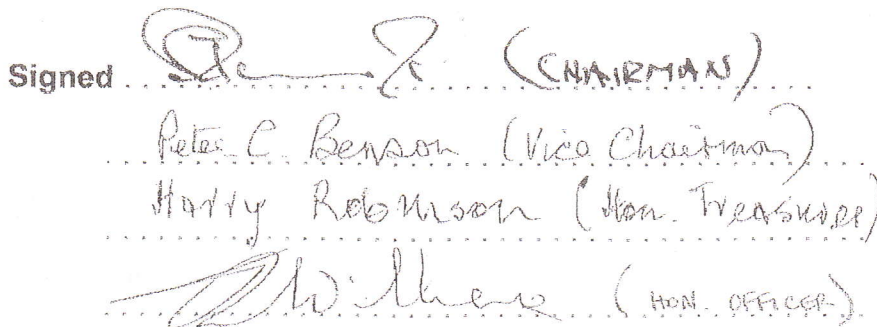 Signed (CHAIRMAN)
Peter C. Benson (Vice Chairman)
Harry Robinson (Hon. Treasurer)
(HON. OFFICER)